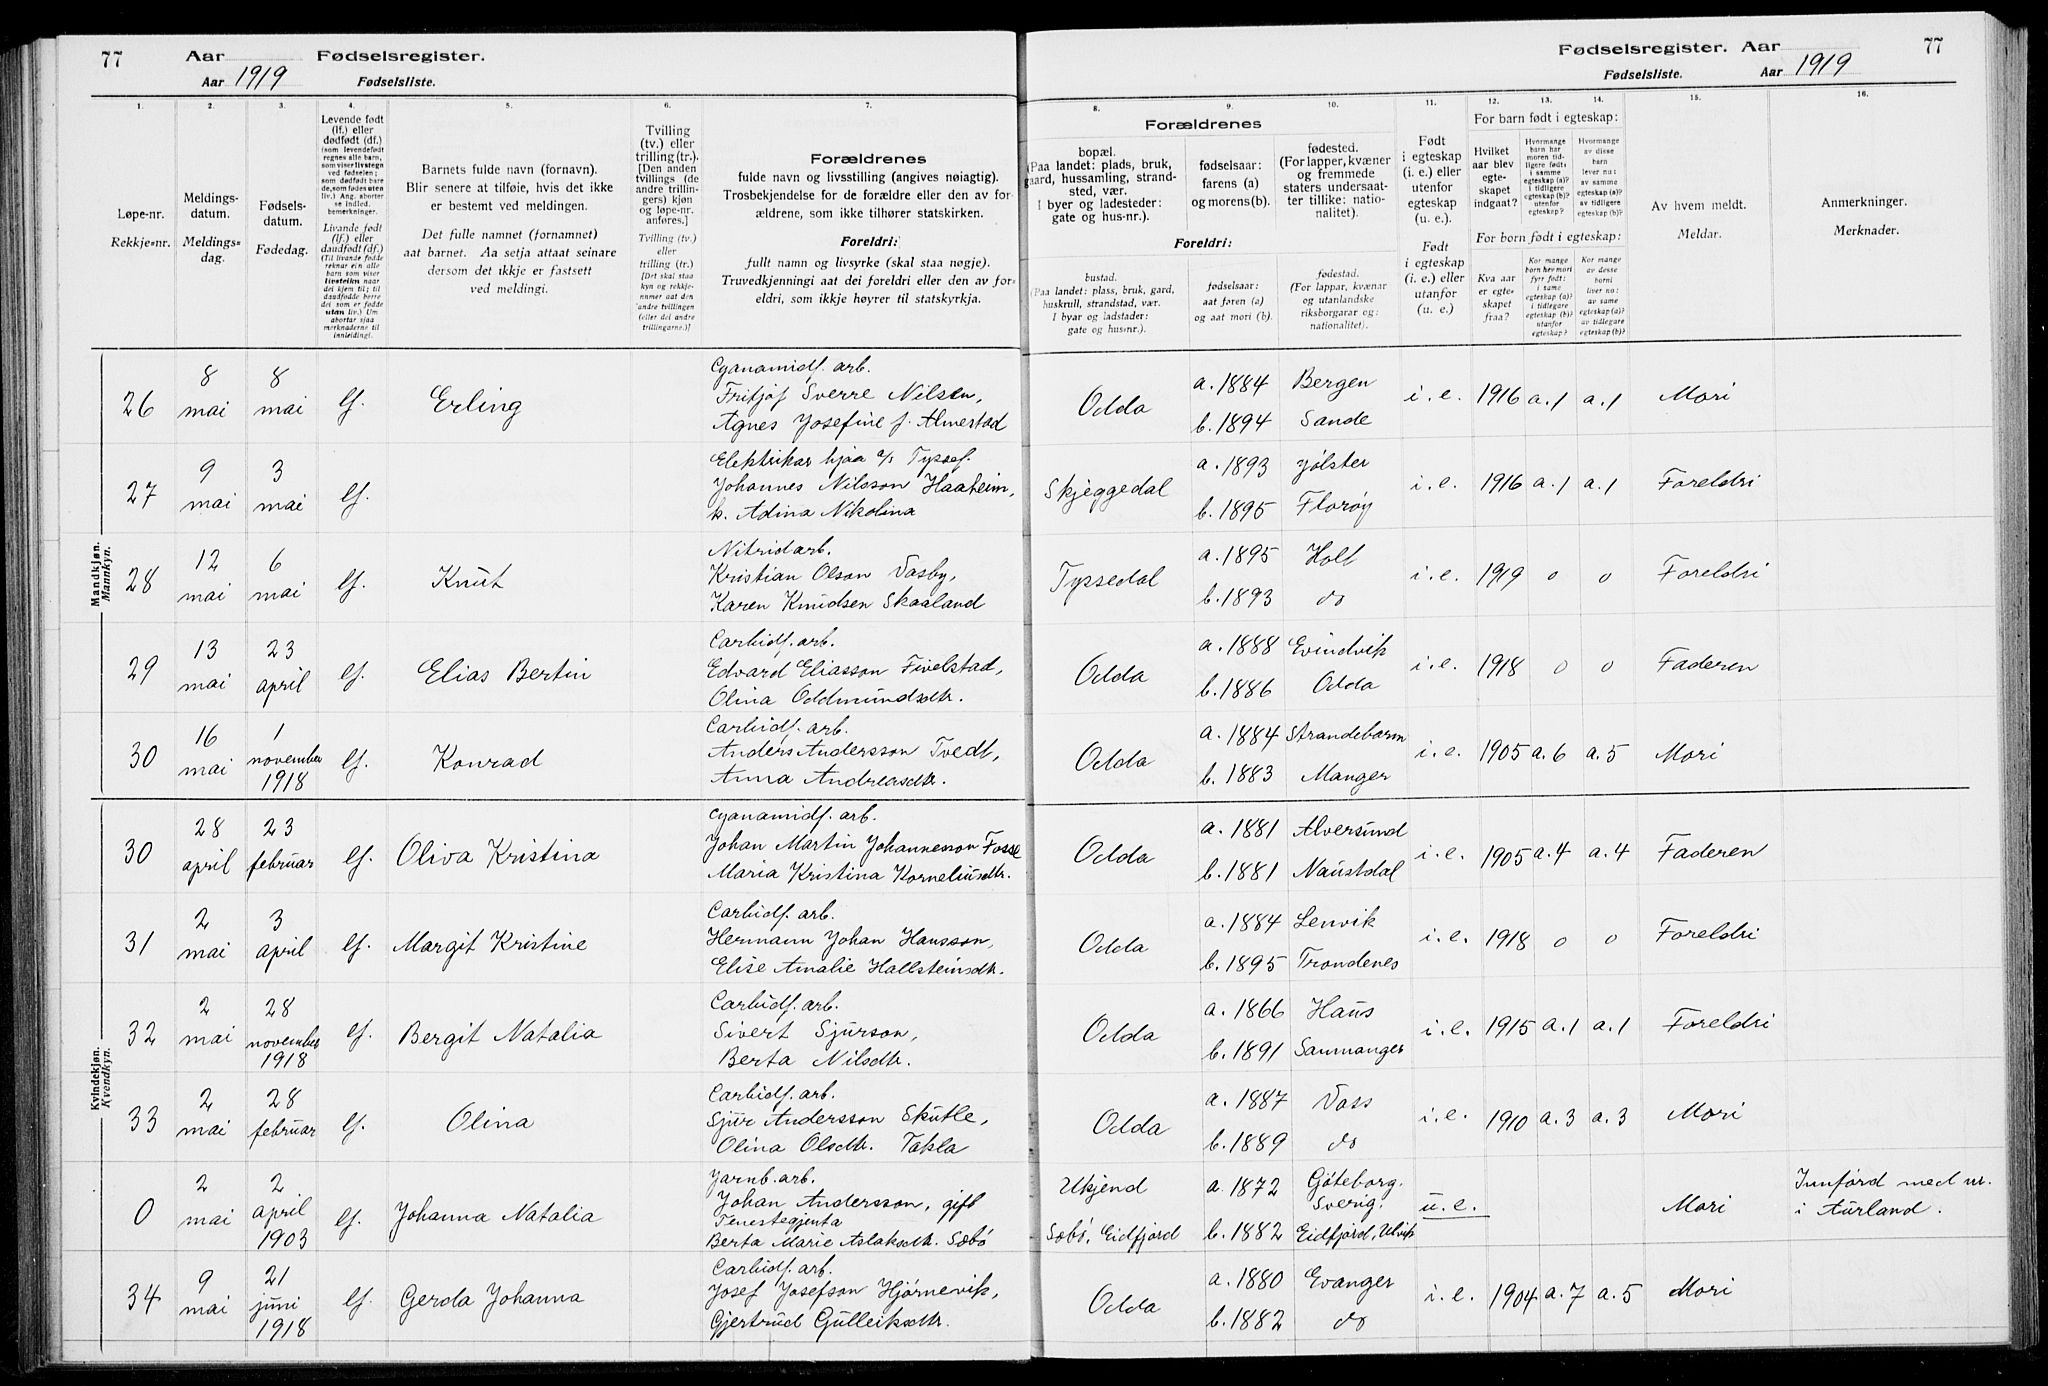 77 Aar Fødselsregister.
Aar 1919 Fødselsliste.
Fødselsregister. Aar 77
Fødselsliste. Aar 1919
1. 2. 3. 4. 5. 6. 7.
8. 9. 10. 11. 12. 13. 14. 15. 16.
Løpe-nr.
Rekkje-nr.
Meldings-
datum.
Meldings-
dag.
Fødsels-
datum.
Fødedag.
Levende født
(lf.) eller
dødfødt (df.)
(som levendefødt
regnes alle barn,
som viser livstegn
ved fødselen;
som dødfødt bare
de, som fødes uten
liv.) Ang. aborter
se indled.
bemerkninger.
Livande født
(lf.) eller
daudfødt (df.)
(Til livande fødde
reknar ein alle
barn som viser
livsteikn naar
dei kjem til; til
daudfødde berre
dei som er fødde
utan liv.) Um
abortar sjaa
merknaderne til
innleidingi.
Barnets fulde navn (fornavn).
Blir senere at tilføie, hvis det ikke
er bestemt ved meldingen.
Det fulle namnet (fornamnet)
aat barnet. Aa setja attaat seinare
dersom det ikkje er fastsett
ved meldingi.
Tvilling
(tv.) eller
trilling (tr.).
[Den anden
tvillings (de
andre trillin-
gers) kjøn
og løpe-nr.
anføres.]
Tvilling (tv.)
eller
trilling (tr.)
[Det skal staa
kyn og rekkje-
nummer aat den
andre tvillingen
(eller dei andre
trillingarne.)]
Forældrenes
fulde navn og livsstilling (angives nøiagtig).
Trosbekjendelse for de forældre eller den av for-
ældrene, som ikke tilhører statskirken.
Foreldri:
fullt namn og livsyrke (skal staa nøgje).
Truvedkjenningi aat dei foreldri eller den av for-
eldri, som ikkje høyrer til statskyrkja.
Forældrenes
bopæl.
(Paa landet: plads, bruk,
gaard, hussamling, strand-
sted, vær.
I byer og ladesteder:
gate og hus-nr.).
fødselsaar:
farens (a)
og morens (b).
fødested.
(For lapper, kvæner
og fremmede
staters undersaat-
ter tillike: natio-
nalitet).
Foreldri:
bustad.
(Paa landet: plass, bruk, gard,
huskrull, strandstad, vær.
I byar og ladstader:
gate og hus-nr.).
fødselsaar:
aat faren (a)
og aat mori (b).
fødestad.
(For lappar, kvænar
og utanlandske
riksborgarar og:
nationalitet).
Født
i egteskap
(i. e.) eller
utenfor
egteskap
(u. e.).
Født
i egteskap
(i. e.) eller
utanfor
(u. e.)
For barn født i egteskap:
Hvilket
aar blev
egte-
skapet
indgaat?
Hvormange
barn har
moren tid-
ligere født;
i samme
egteskap (a)?
i tidligere
egteskap (b)?
utenfor
egteskap?
Hvormange
av disse
barn
lever nu:
av samme
egteskap (a)?
av tidligere
egteskap (b)?
For born født i egteskap:
Kva aar
er egte-
skapet
fraa?
Kor mange
born hev mori
fyrr født:
i same
egteskap (a)?
i tidlegare
egteskap (b)?
utanfor
egteskap?
Kor mange
av desse
borni
liver no:
av same
egteskap (a)?
av tidlegare
egteskap (b)?
Av hvem meldt.
Meldar.
Anmerkninger.
Merknader.
Mandkjøn.
Mannkyn.
26 8 mai 8 mai lf. Erling
Cyanamidf. arb.
Fritjof Sverre Nilsen,
Agnes Josefine f. Almestad
Odda a. 1884 Bergen b. 1894 Sande i. e. 1916 a. 1 a. 1 Mori
27 9 mai 3 mai lf.
Elektrikar hjaa a/s Tyssef.
Johannes Nilsson Haaheim,
k. Adina Nikolina
Skjeggedal a. 1893 Jølster b. 1895 Florøy i. e. 1916 a. 1 a. 1 Foreldri
28 12 mai 6 mai lf. Knut
Nitridarb.
Kristian Olson Vasby,
Karen Knudsen Skaaland
Tyssedal a. 1895 Holt b. 1893 do i. e. 1919 0 0 Foreldri
29 13 mai 23 april lf. Elias Bertin
Carbidf. arb.
Edvard Eliasson Fivelstad,
Olina Oddmundsdtr.
Odda a. 1888 Evindvik b. 1886 Odda i. e. 1918 0 0 Faderen
30 16 mai 1 november 1918 lf. Konrad
Carbidf. arb.
Anders Andersson Tvedt,
Anna Andreasdtr.
Odda a. 1884 Strandebarm b. 1883 Manger i. e. 1905 a. 6 a. 5 Mori
Kvindekjøn.
Kvendkyn.
30 28 april 23 februar lf. Oliva Kristina
Cyanamidf. arb.
Johan Martin Johannesson Fosse
Maria Kristina Korneliusdtr.
Odda a. 1881 Alversund b. 1881 Naustdal i. e. 1905 a. 4 a. 4 Faderen
31 2 mai 3 april lf. Margit Kristine
Carbidf. arb.
Hermann Johan Hansson,
Elise Amalie Hallsteinsdtr.
Odda a. 1884 Lenvik b. 1895 Trondenes i. e. 1918 0 0 Foreldri
32 2 mai 28 november 1918 lf. Bergit Natalia
Carbidf. arb.
Sivert Sjurson,
Berta Nilsdtr.
Odda a. 1866 Haus b. 1891 Sammanger i. e. 1915 a. 1 a. 1 Foreldri
33 2 mai 28 februar lf. Olina
Carbidf. arb.
Sjur Andersson Skutle,
Olina Olsdtr. Takla
Odda a. 1887 Vass b. 1889 do i. e. 1910 a. 3 a. 3 Mori
0 2 mai 2 april 1903 lf. Johanna Natalia
Jarnb. arb.
Johan Andersson, gift
Tenestegjenta
Berta Marie Aslaksdtr. Sæbø
Ukjend a. 1872 Gjøteborg. Sverig.
Sæbø, Eidfjord b. 1882 Eidfjord, Ulvik u. e. Mori
Innførd med nr.
i Aurland.
34 9 mai 21 juni 1918 lf. Gerda Johanna
Carbidf. arb.
Josef Josefson Hjørnevik,
Gjertrud Gulleiksdtr.
Odda a. 1880 Evanger b. 1882 do i. e. 1904 a. 7 a. 5 Mori